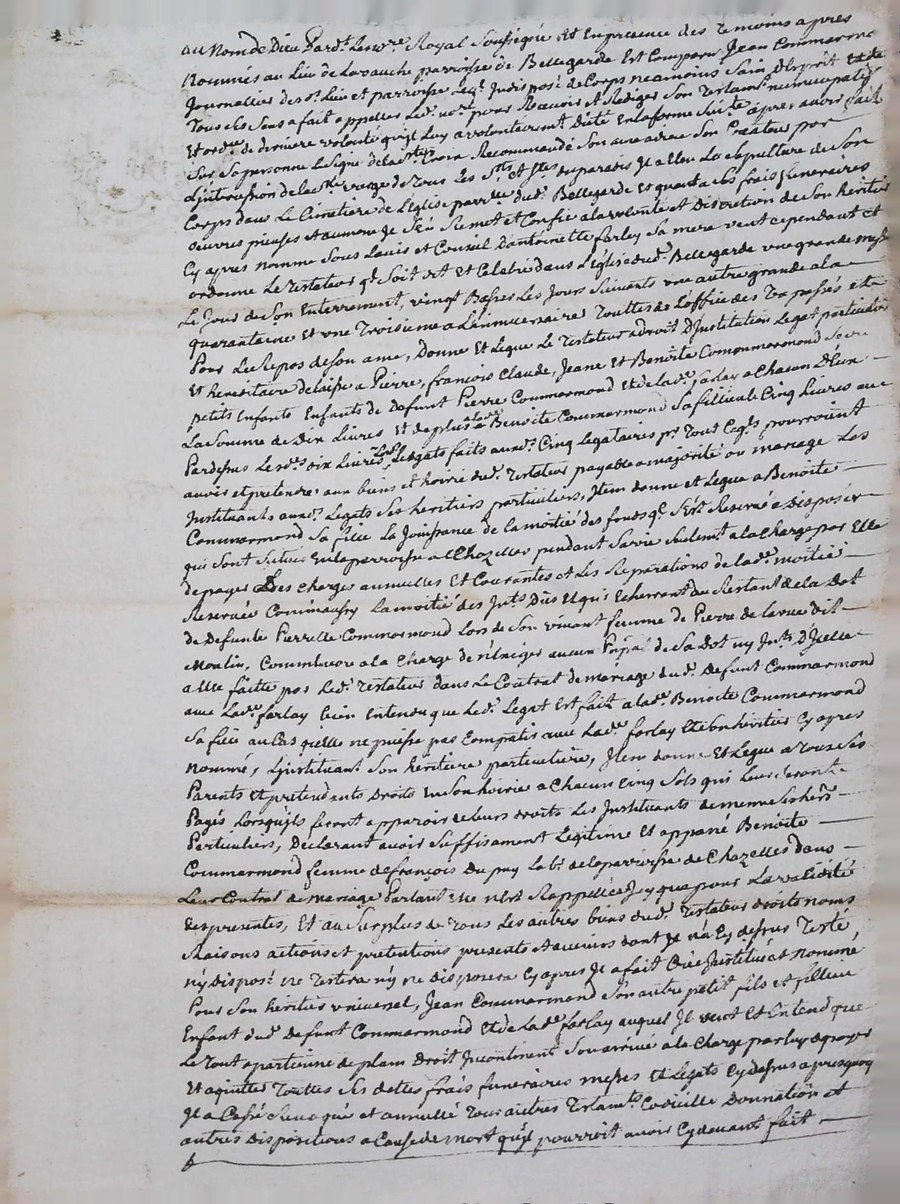 au Nom de Dieu Pardt Le Nre Royal Soussigné Et En presence des Temoins apres
Nommés au Lieu de Lavauche parroisse de Bellegarde Est Comparu Jean Commarmond
Journallier du dt Lieu et parroisse Leql Indisposé de Corps neamoins Sain D'Esprit
Tous Ses Sens a fait appeller Led. nore pour Recevoir et Rediger Son Testamt nuncupatif
Et ordre de derniere volonté qu'il Luy a volontairemt Dicté En la forme Suivte apres avoir fait
Sur Sa personne Le Signe de la Ste Croix Recommandé Son ame a dieu Son Createur par
L'intercession de la Ste vierge de Tous Les Sts et Stes du paradis Il a Elu La Sepulture de Son
Corps dans Le Cimetiere de L'Eglise parrlle dud. Bellegarde Et quant a Ses frais funeraires
oeuvres pieuses et aumone Je S'En Remet et Confie a la volonté et Discretion de Son heritier
Cy apres nommé Sous Lavis et Conseil D'antoinette farlay Sa mere veut cependant et
ordonne Le Testateur ql Soit dit Et Celebré dans L'Eglise dud. Bellegarde une grande messe
Le Jour de Son Enterrement, vingt Basses Les Jours Suivants une autre grande a la
quarantaine Et une Troisieme a L'anniversaire Touttes de L'office des Trepassés et a
Pour Le Repos de Son ame, Donne Et Legue Le Testateur a droit D'Institution Legat particulier
Et hereditaire delaisse a Pierre, françois Claude, Jeane Et Benoite Commarmond
petits Enfants Enfants de Defunt Pierre Commarmond Et de lad. farlay a Chacun D'Eux
La Somme de Dix Livres Et de plus a lad. Benoite Commarmond Sa fillieule Cinq Livres au
Pardessus Lesd. dix Livres, Lesd. Legats faits auxd. Cinq Legataires pr Tout Ce ql pourroient
avoir et pretendre aux biens et hoirie dud. Testateur payable a majorité ou mariage Les
Instituants auxd. Legats Ses heritiers particuliers, Item donne et Legue a Benoite
Commarmond Sa fille La Jouissance de la moitié des fonds ql S'Est Reservé a Disposer
qui Sont Situés En la parroisse de Chazelles pendant Sa vie Seulemt a la charge par Elle
de payer Les charges annuelles Et Courantes et Les Reparations de lad. moitié
Reservée Comm'aussy La moitié des Ints Dûs Et qui Echerront du Restant de la Dot
de Defunte Pierrette Commarmond Lors de Son vivant femme de Pierre de la rue dit
Moulin, a la Charge de n'Exiger aucun Prpal de Sa Dot ny Ints D'Icelle
a Elle faitte par Led. Testateur dans Le Contrat de mariage dud. Defunt Commarmond
avec Lad. farlay bien Entendu que Led. Legat Est fait a lad. Benoite Commarmond
Sa fille au Cas qu'Elle ne puisse pas Compatir avec Lad. farlay Et Son heritier Cy apres
nommé, L'instituant Son heritiere particuliere, Item donne Et Legue a Tous Ses
Parents Et pretendants Droits En Son hoirie a Chacun Cinq Sols qui Leur Seront
Payés Lorsqu'ils feront apparoir de Leurs droits Les Instituants de meme Ses hers
Particuliers, Declarant avoir Suffisament Legitimé Et appané Benoite
Commarmond femme de françois Dupuy Labr de la parroisse de Chazelles dans
Leur Contrat de mariage Partant Elle n'Est Rappellée Icy que pour La validité
des presentes, Et au Surplus de Tous Les autres biens dud. Testateur droits noms
Raisons actions et pretentions presents et avenirs dont Il n'a Cy dessus Testé,
n'y Disposé ne Testera n'y ne disposera Cy apres Il a fait Créé Institué et nommé
Pour Son heritier universel, Jean Commarmond Son autre petit fils et fillieu
Enfant dud. Defunt Commarmond Et de Lad. farlay auquel Il veut Et Entend que
Le Tout apartienne de plain Droit Incontinent Son arrivé a la Charge par Luy de payer
Et aquitter Touttes Ses dettes frais funeraires messes Et Legats Cy dessus apres quoy
Il a Cassé Revoqué et annullé Tous autres Testamts Codicille Donnation et
autres Dispositions a Cause de mort qu'il pourroit avoir Cy devant fait